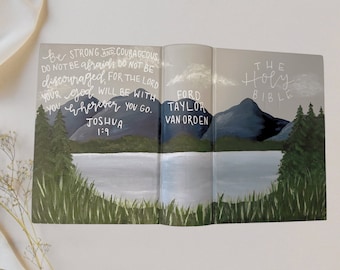 be STRONG AND COURAGEOUS
DO NOT BE afraid; DO NOT BE
discouraged FOR THE LORD
YOUR God WILL BE WITH
YOU wherever YOU GO.
JOSHUA
1:9
FORD
TAYLOR
VAN ORDEN
THE
Holy
BIBLE